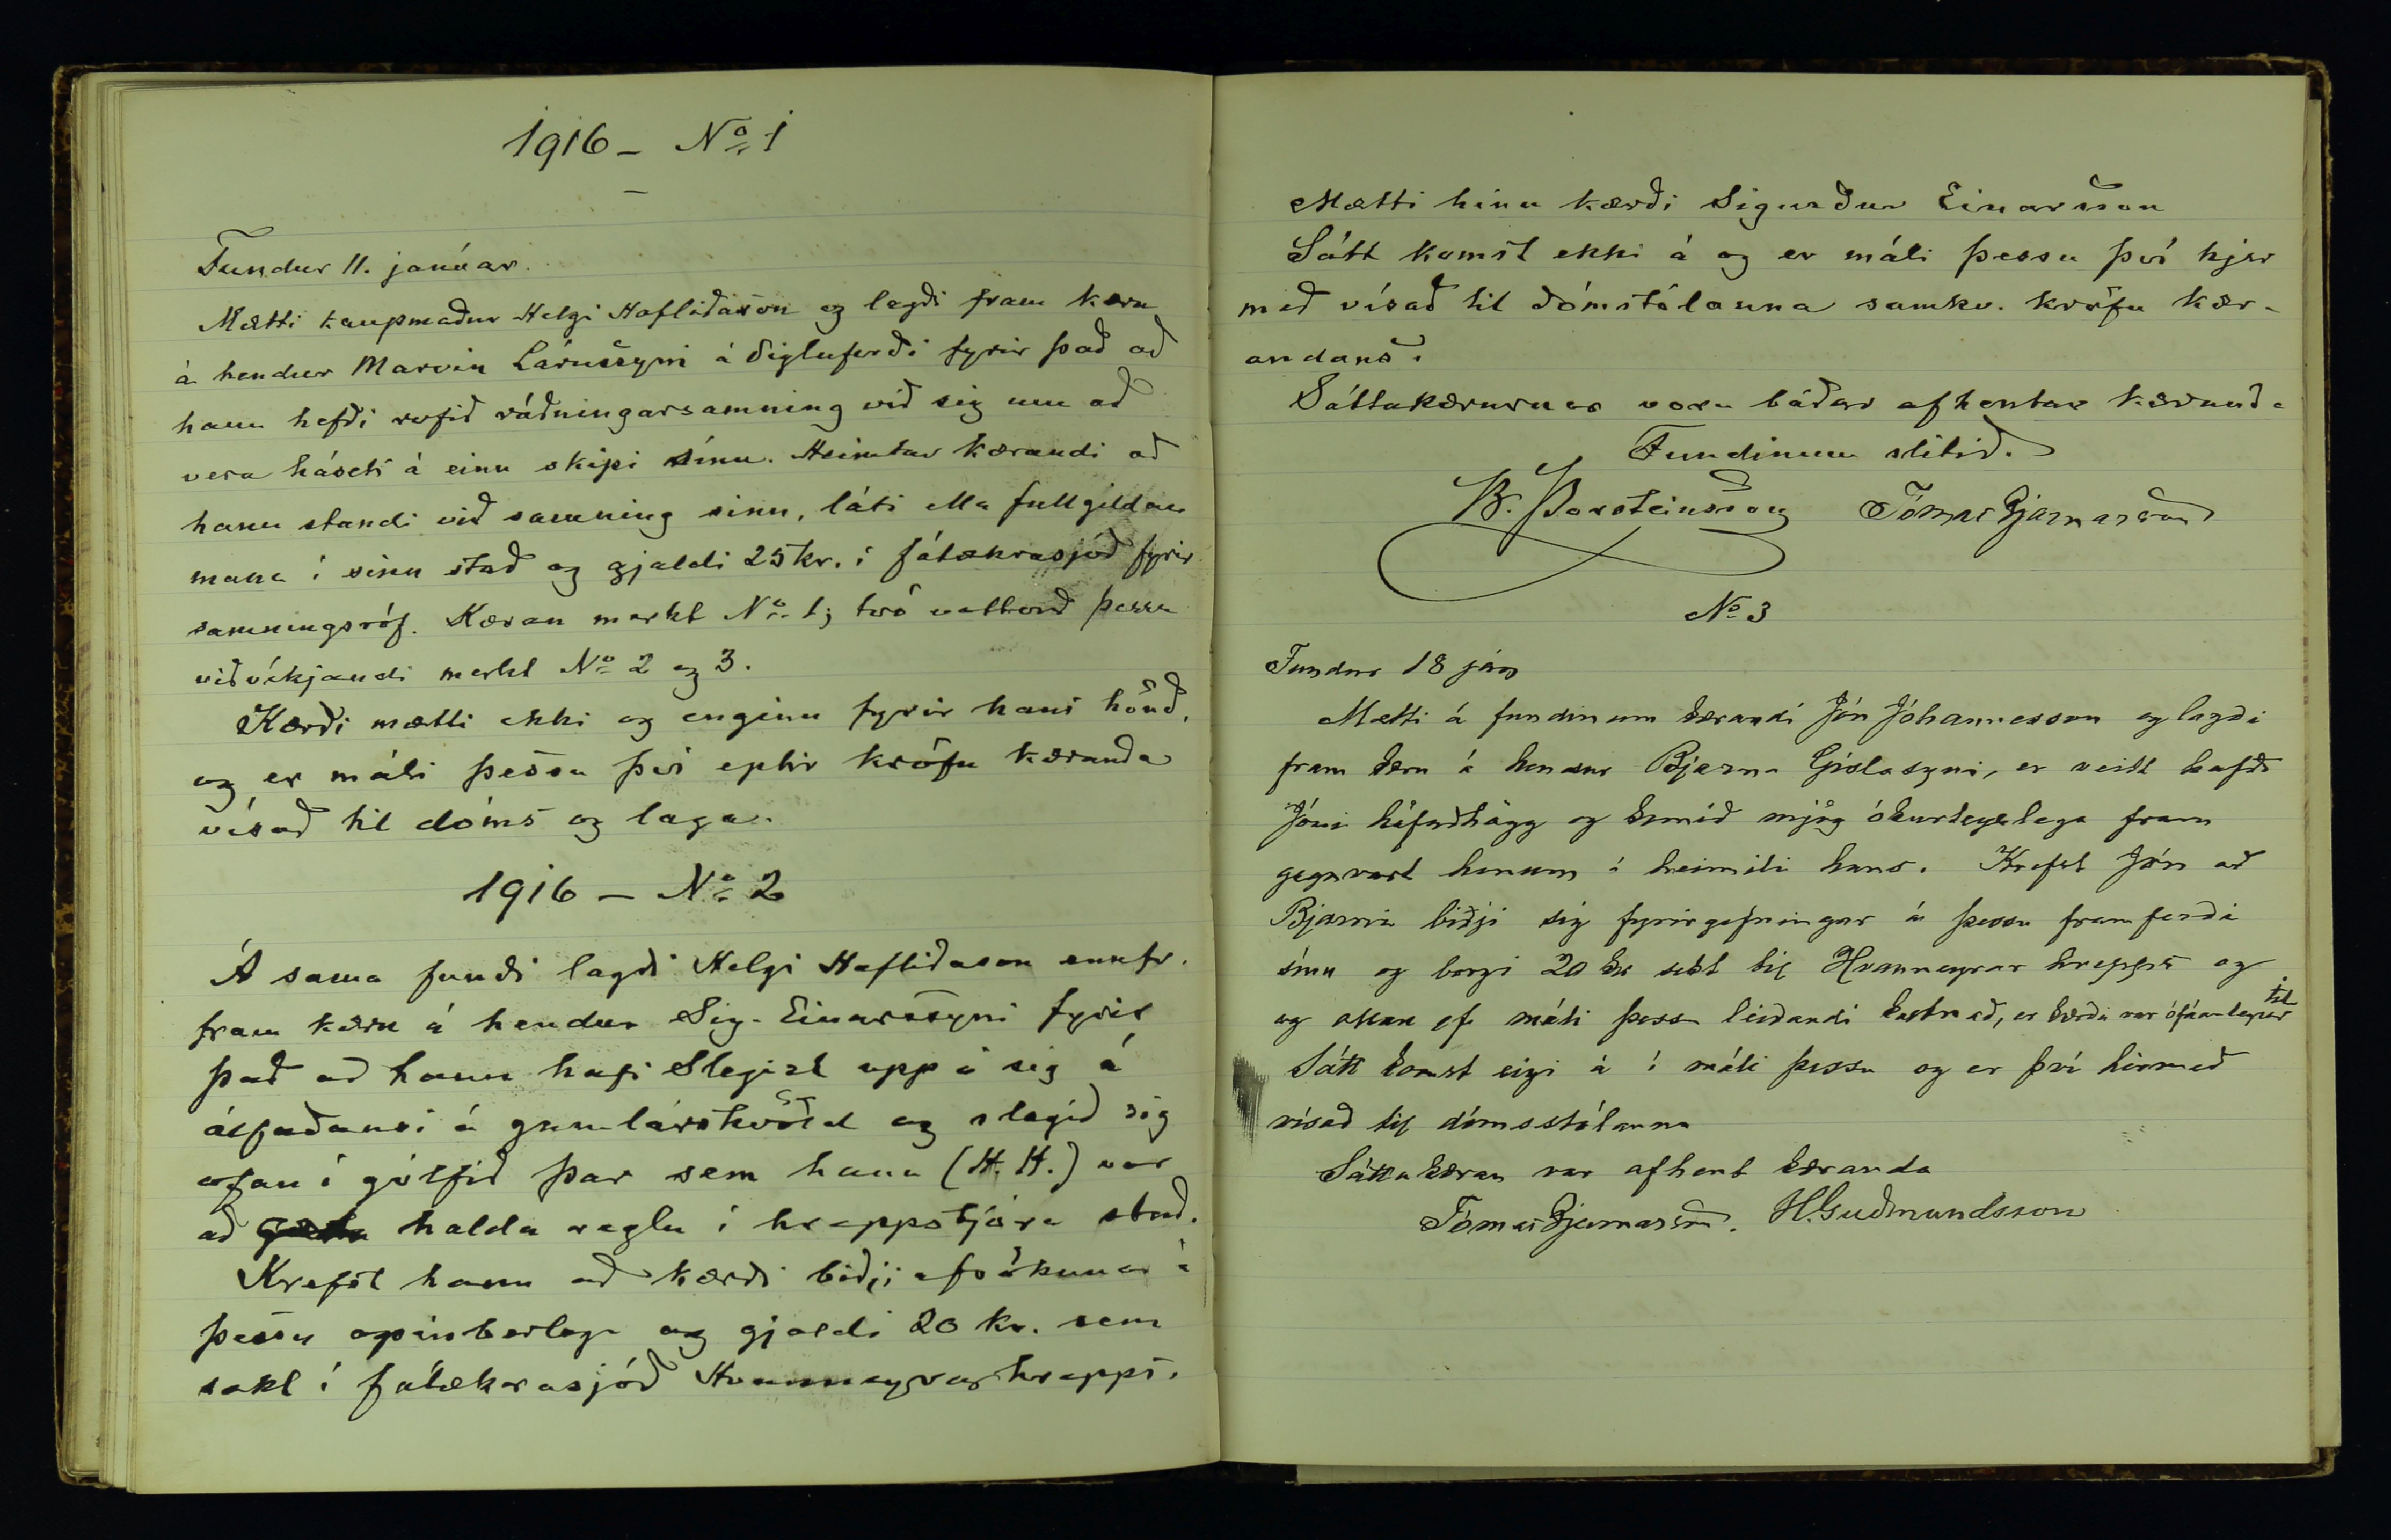 1916 – No. 1
Fundur 11. janúar.
Mætti kaupmaður Helgi Hafliðason og lagði fram kæru
á hendur Marvin Lárussyni á Siglufirði fyrir það að
hann hefði rofið ráðningarsamning við sig um að
vera háseti á einu skipi sínu. Heimtar kærandi að
hann standi við samning sinn, láti ella fullgildan
mann í sinn stað og gjaldi 25 kr. í fátækrasjóð fyrir
samningsróf. Kæran merkt No. 1; tvö vottorð þessu
viðvíkjandi merkt No. 2 og 3.
Kærði mætti ekki og enginn fyrir hans hönd,
og er máli þessu því eptir kröfu kæranda
vísað til dóms og laga.
1916 – No. 2
Á sama fundi lagði Helgi Hafliðason ennfr.
fram kæru á hendur Sig. Einarssyni fyrir
það að hann hafi slegist upp á sig á
álfadansi á gamlárskvöld og slegið sig
ofan í gólfið þar sem hann (H. H.) var
að halda reglu í hreppstjóra stað.
Krefst hann að kærði biðji afsökunar á
þessu opinberlega og gjaldi 20 kr. sem
sekt í fátækrasjóð Hvanneyrarhrepps.
Mætti hinn kærði Sigurður Einarsson
Sátt komst ekki á og er máli þessu því hjer
með vísað til dómstólanna samkv. kröfu kær-
andans.
Sáttakærurnar voru báðar afhentar kæranda
Fundinum slitið.
B. Þorsteinsson Tómas Bjarnason
No 3
Fundur 18 jan
Mætti á fundinum kærandi Jón Jóhannesson og lagði
fram kæru á hendur Bjarna Gíslasyni, er veitt hafði
Jóni höfuðhögg og komið mjög ókurteyslega fram
gegnvart honum í heimili hans. Krefst Jón að
Bjarni biðji sig fyrirgefningar á þessu framferði
sínu og borgi 20 kr sekt til Hvanneyrar hrepps og
og allan af máli þessu leiðandi kostnað, er kærði var ófáanlegur til
Sátt komst eigi á í máli þessu og er því hérmeð
vísað til dómsstólanna
Sáttakæran var afhent kæranda
Tómas Bjarnason. H. Guðmundsson